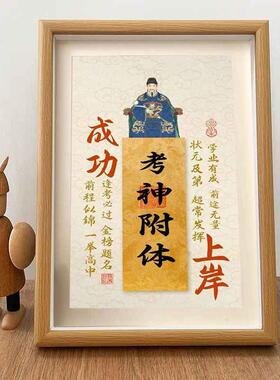 学业有成 前途无量
状元及第 超常发挥
上岸
考神附体
成功
逢考必过 金榜题名
前程似锦 一举高中